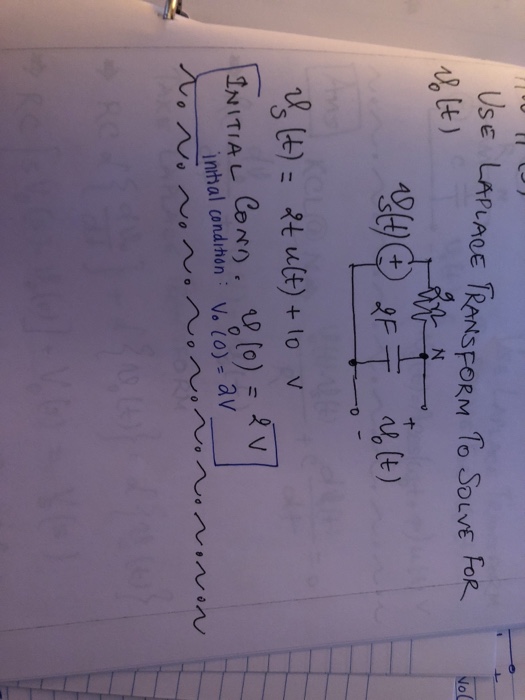 USE LAPLACE TRANSFORM TO SOLVE FOR
v₀(t)
+
vₛ(t) + 2F v₀(t)
-
vₛ(t) = 2t u(t) + 10 V
INITIAL COND. v₀(0) = 2V
initial condition: V₀(0) = 2V